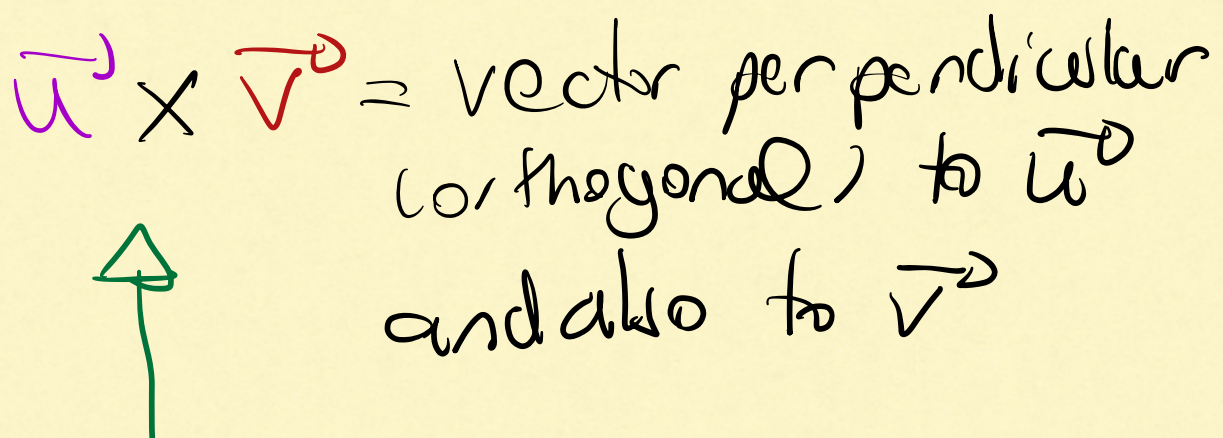 u⃗ × v⃗ = vector perpendicular
(orthogonal) to u⃗
and also to v⃗